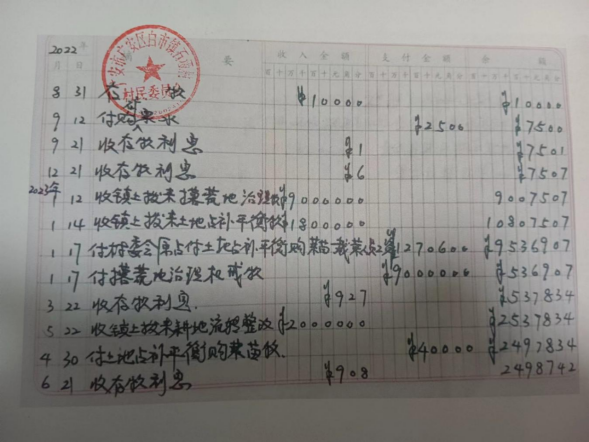 2022年 要 收入金额 支付金额 余额
月 日 百十万千百十元角分 百十万千百十元角分 百十万千百十元角分
8 31 存 款 ¥10000 ¥10000
9 12 付购 ¥2500 ¥7500
9 21 收存款利息 ¥1 ¥7501
12 21 收存款利息 ¥6 ¥7507
2023年
1 12 收镇上拨来撂荒地治理款 ¥9000000 9007507
1 14 收镇上拨来土地占补平衡款 ¥1800000 10807507
1 17 付村委会原占付土地占补平衡购菜苗栽菜 ¥1270600 ¥9536907
1 17 付撂荒地治理 款 ¥9000000 ¥536907
3 22 收存款利息. ¥927 ¥537834
5 22 收镇上拨来耕地流 整改 ¥2000000 ¥2537834
4 30 付土地占补平衡购菜苗款. ¥40000 ¥2497834
6 21 收存款利息 ¥908 2498742
村民委员会